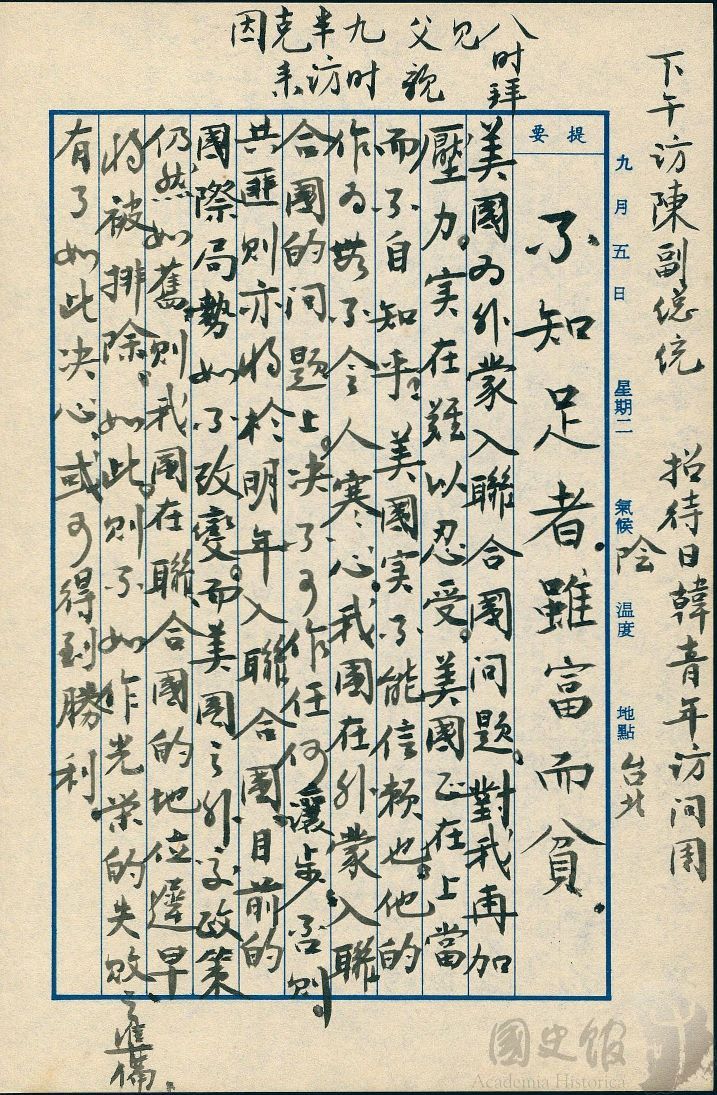 下午访陳副总统 招待日韓青年访问团
八时拜
见父親
九时半访
克来因
九月五日 星期二 氣候 陰 溫度 地點 台北
提要
不知足者.雖富而貧.
美國为外蒙入聯合國问題.對我再加
壓力.实在难以忍受.美國正在上當
而不自知乎.美國实不能信赖也.他的
作为甚不令人寒心.我國在外蒙入聯
合國的问題上.决不可作任何讓步.否则
共匪则亦将於明年入聯合國.目前的
國際局勢如不改變.而美國之外交政策
仍然如舊.则我國在聯合國的地位遲早
将被排除.如此.则不如作光荣的失败之準備.
有了如此决心.或可得到勝利.
國史館
Academia Historica